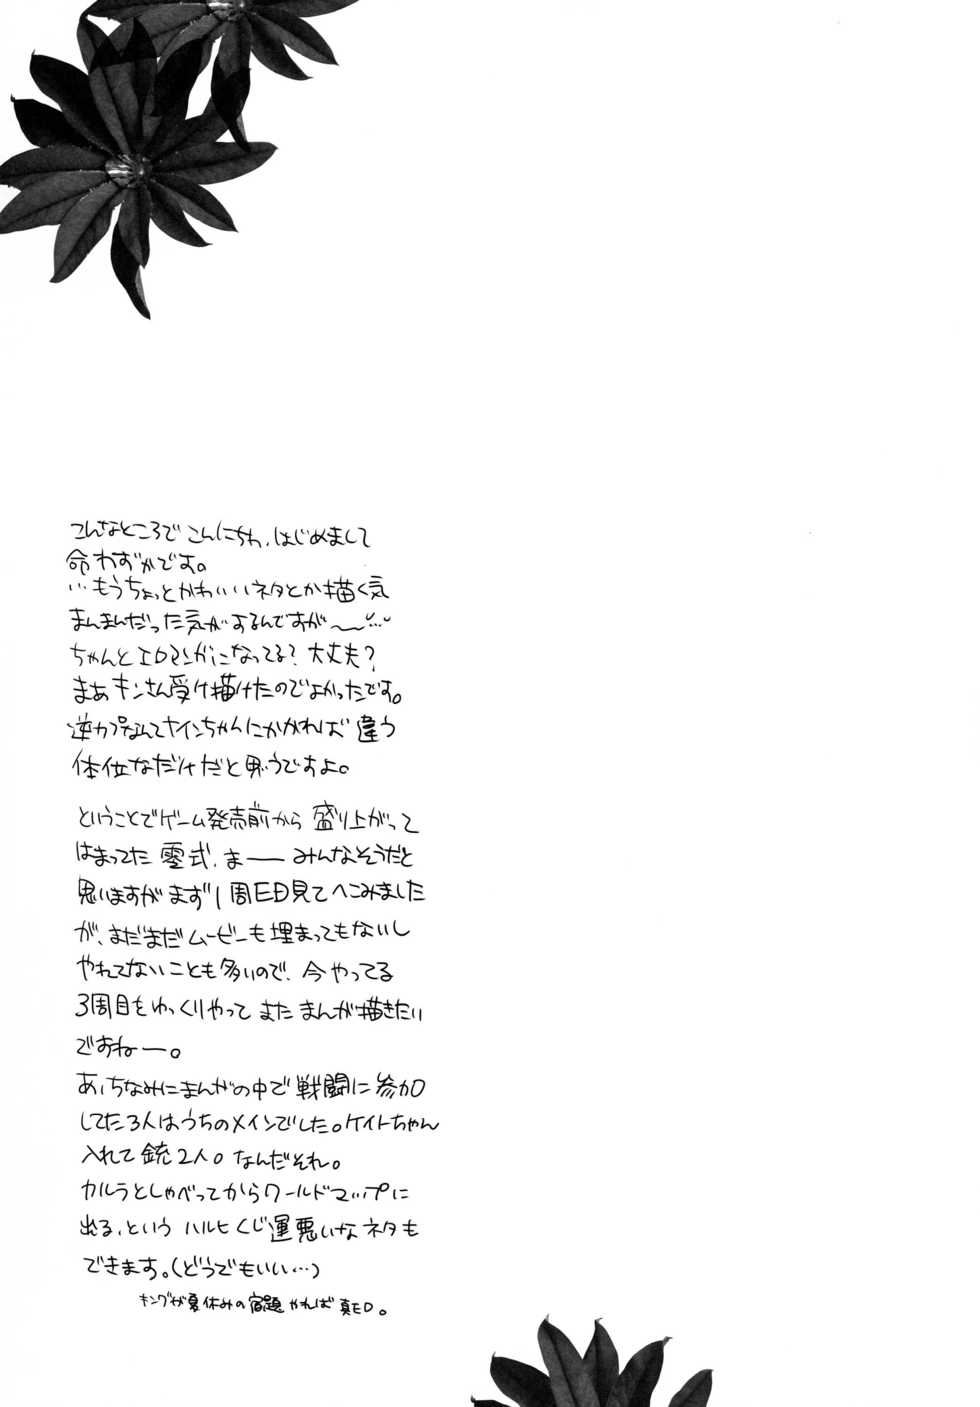 こんなところでこんにちわ、はじめまして
命わずかです。
…もうちょっとかわいいネタとか描く気
まんまんだった気がするんですが〜〜…
ちゃんとエロマンガになってる？大丈夫？
まぁキンさん受け描けたのでよかったです。
逆カプなんてナインちゃんにかかれば違う
体位なだけだと思うですよ。
ということでゲーム発売前から盛り上がって
はまってた零式、まーーみんなそうだと
思いますがまず1周ED見てへこみました
が、まだまだムービーも埋まってもないし
やれてないことも多いので、今やってる
3周目をゆっくりやってまたまんが描きたい
ですねー。
あ、ちなみにまんがの中で戦闘に参加
してた3人はうちのメインでした。ケイトちゃん
入れて銃2人。なんだそれ。
カルラとしゃべってからワールドマップに
出る、というハルヒくじ運悪いなネタも
できます。(どうでもいい…)
キングが夏休みの宿題やれば真ED。